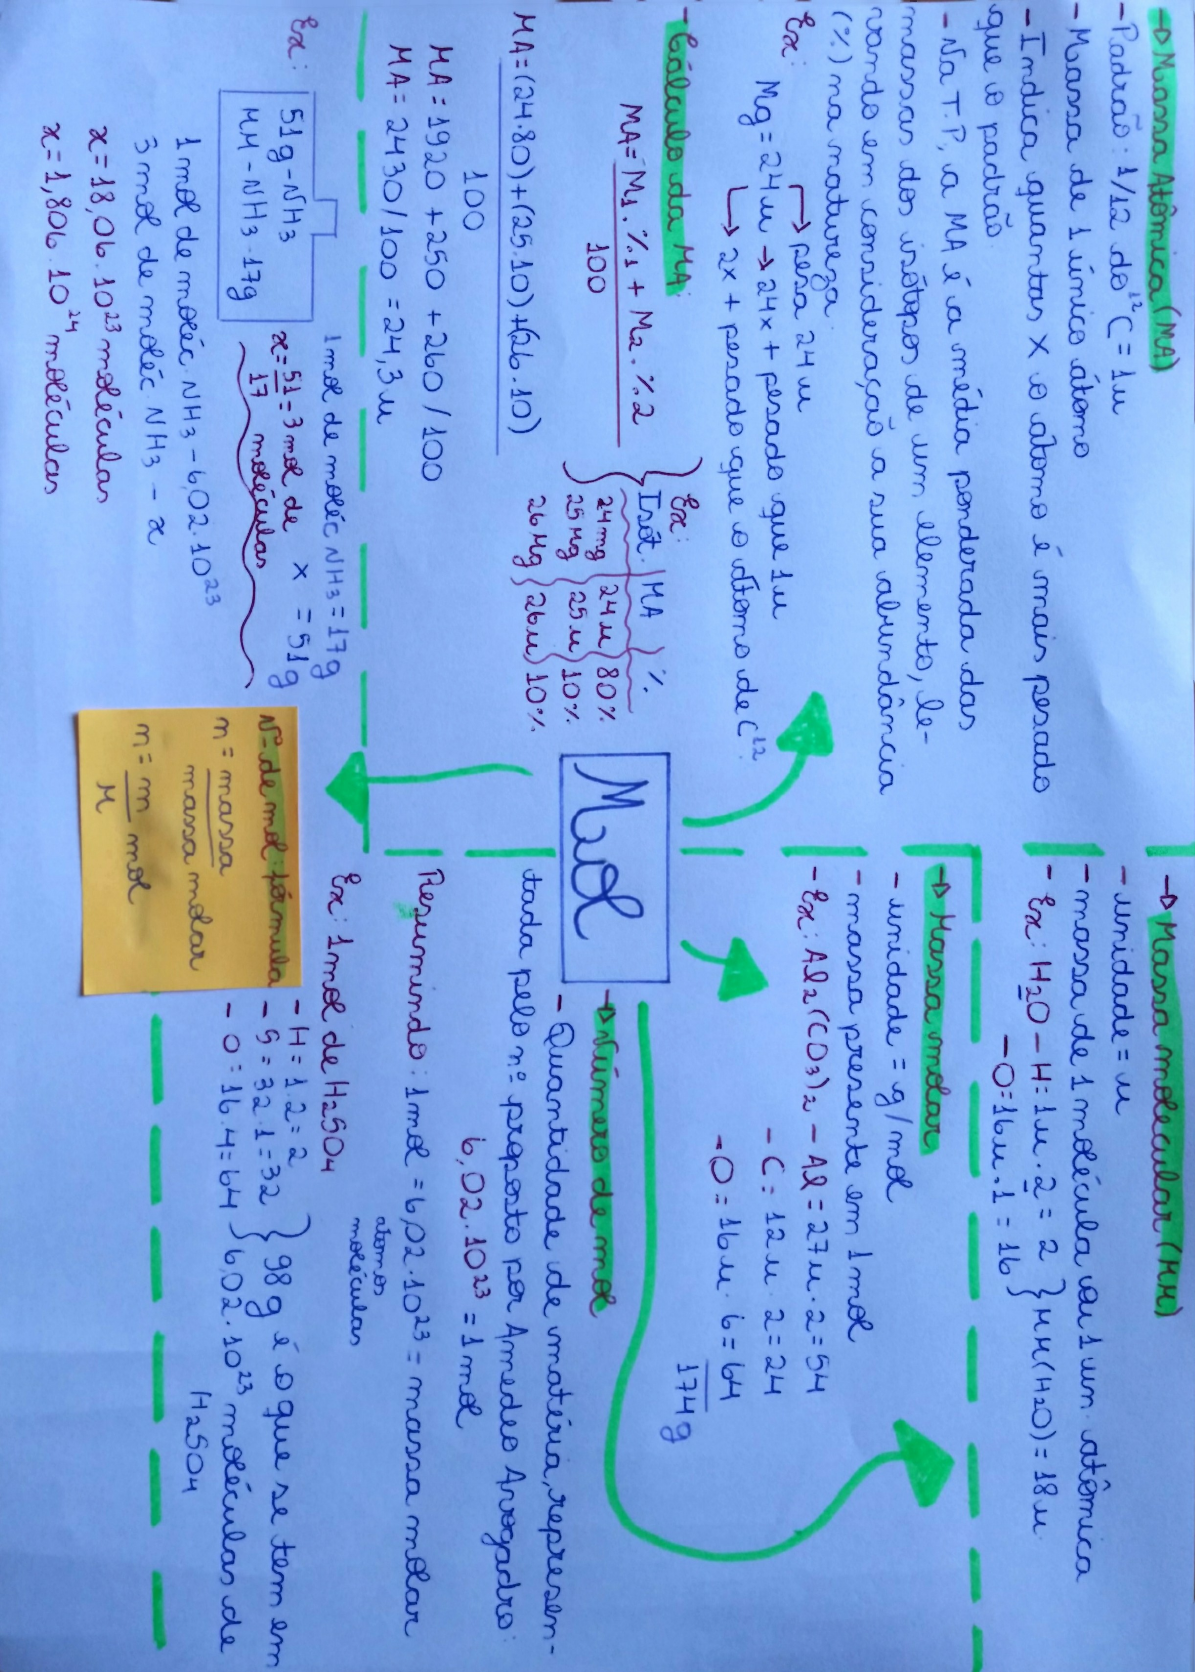 → Massa Atômica (MA)
- Padrão: 1/12 do ¹²C = 1u
- Massa de 1 único átomo
- Indica quantas x o átomo é mais pesado
que o padrão
- Na T.P, a MA é a média ponderada das
massas dos isótopos de um elemento, le-
vando em consideração a sua abundância
(%) na natureza.
Ex:
→ pesa 24u
Mg = 24u → 24x + pesado que 1u
→ 2x + pesado que o átomo de C¹².
- Cálculo da MA:
MA = M1 . %1 + M2 . %2
100
Ex:
Isót. MA %
24mg 24u 80%
25Mg 25u 10%
26Mg 26u 10%
MA = (24.80) + (25.10) + (26.10)
100
MA = 1920 + 250 + 260 / 100
MA = 2430 / 100 = 24,3u
Ex:
51g - NH3
MM - NH3 . 17g
1 mol de moléc NH3 = 17g
x = 51g
x = 51 = 3 mol de
17 moléculas
1 mol de moléc. NH3 - 6,02.10²³
3 mol de moléc. NH3 - x
x = 18,06 . 10²³ moléculas
x = 1,806 . 10²⁴ moléculas
Mol
→ Massa molecular (MM)
- unidade = u
- massa de 1 molécula ou 1 un. atômica
- Ex: H2O - H = 1u . 2 = 2 } MM (H2O) = 18u
- O = 16u . 1 = 16
→ Massa molar
- unidade = g/mol
- massa presente em 1 mol
- Ex: Al2(CO3)2 - Al = 27u . 2 = 54
- C = 12u . 2 = 24
- O = 16u . 6 = 64
174g
→ Número de mol
- Quantidade de matéria, represen-
tada pelo nº proposto por Amedeo Avogadro:
6,02 . 10²³ = 1 mol
Resumindo: 1 mol = 6,02 . 10²³ = massa molar
átomos
moléculas
Ex: 1 mol de H2SO4
- H = 1.2 = 2
- S = 32.1 = 32 } 98g é o que se tem em
- O = 16.4 = 64 6,02 . 10²³ moléculas de
H2SO4
Nº de mol: fórmula
n = massa
massa molar
n = m mol
M